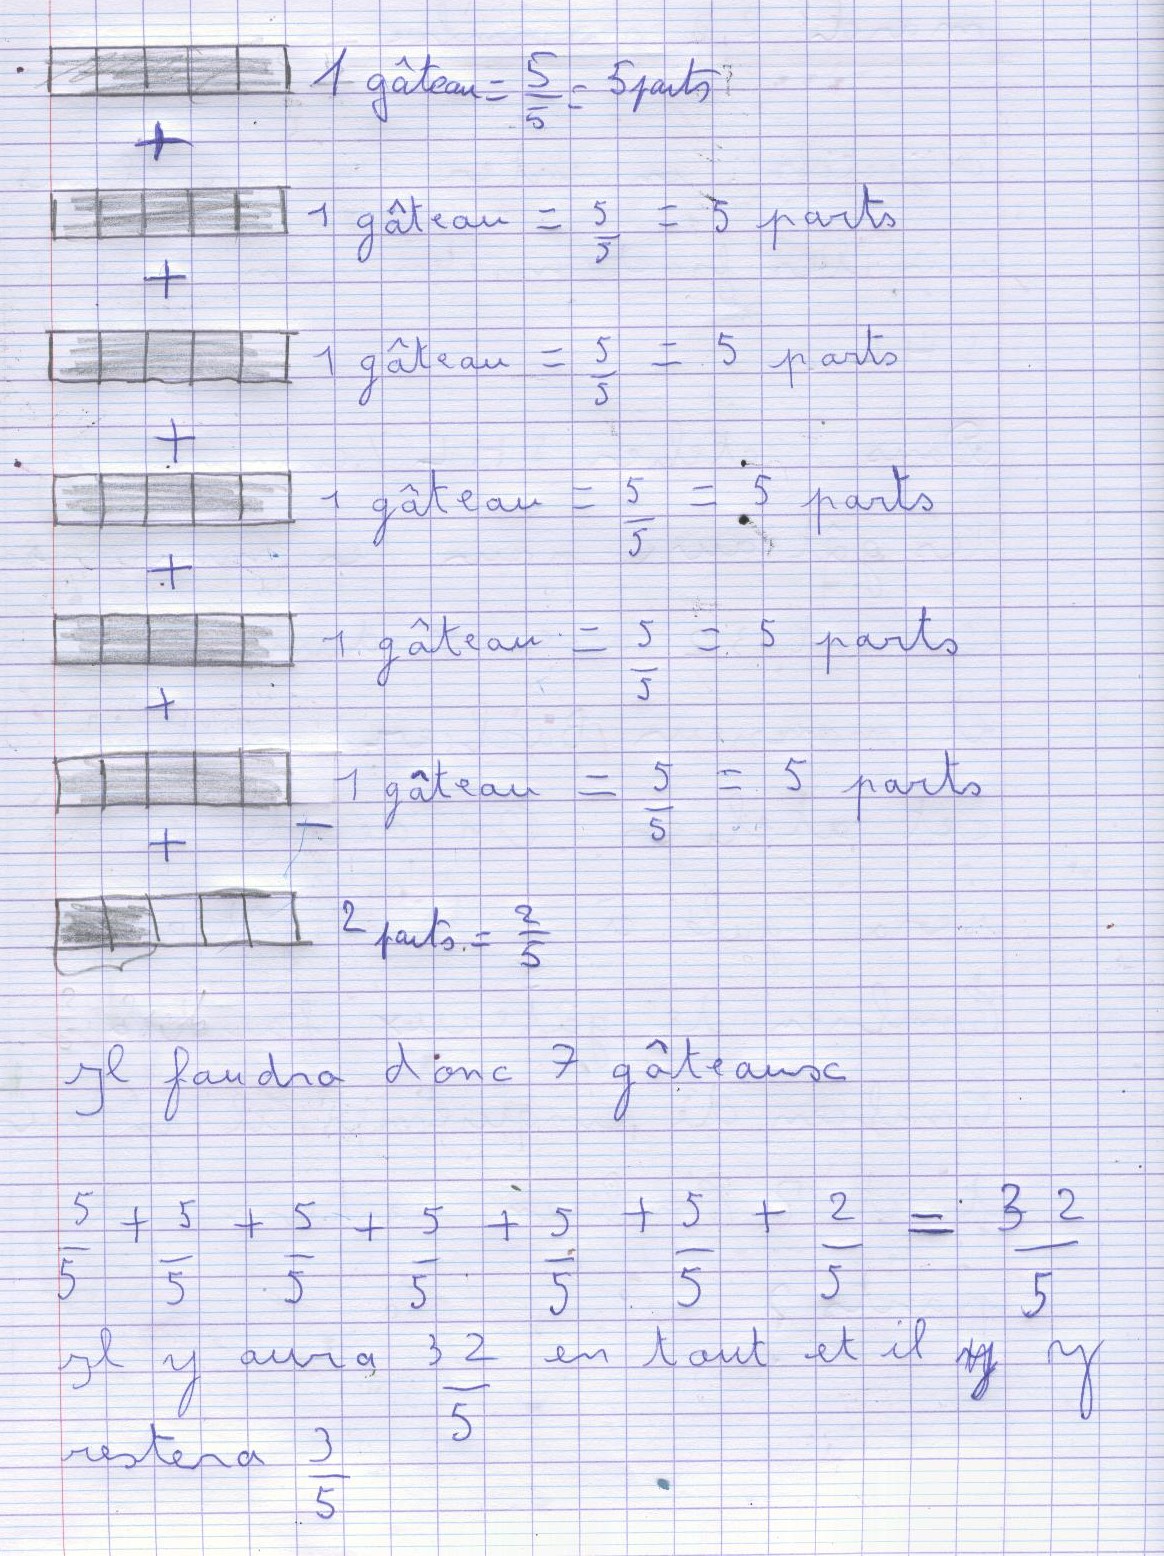 1 gâteau = 5/5 = 5 parts
+
1 gâteau = 5/5 = 5 parts
+
1 gâteau = 5/5 = 5 parts
+
1 gâteau = 5/5 = 5 parts
+
1 gâteau = 5/5 = 5 parts
+
1 gâteau = 5/5 = 5 parts
+
2 parts = 2/5
Il faudra donc 7 gâteaux
5/5 + 5/5 + 5/5 + 5/5 + 5/5 + 5/5 + 2/5 = 32/5
Il y aura 32/5 en tout et il y
restera 3/5